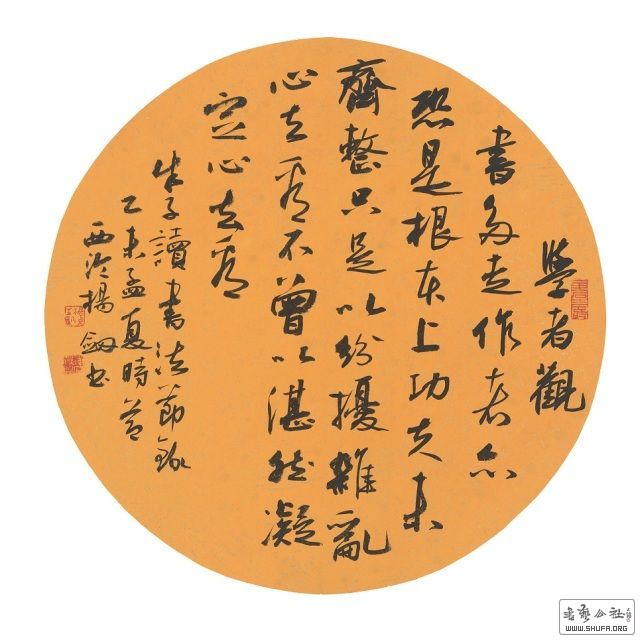 學者觀
書多走作者亦
恐是根本上功夫未
齊整只是以紛擾雜亂
心去看不曾以湛然凝
定心去看
朱子讀書法節錄
乙未孟夏時
西泠楊劔書
書藝公社
WWW.SHUFA.ORG